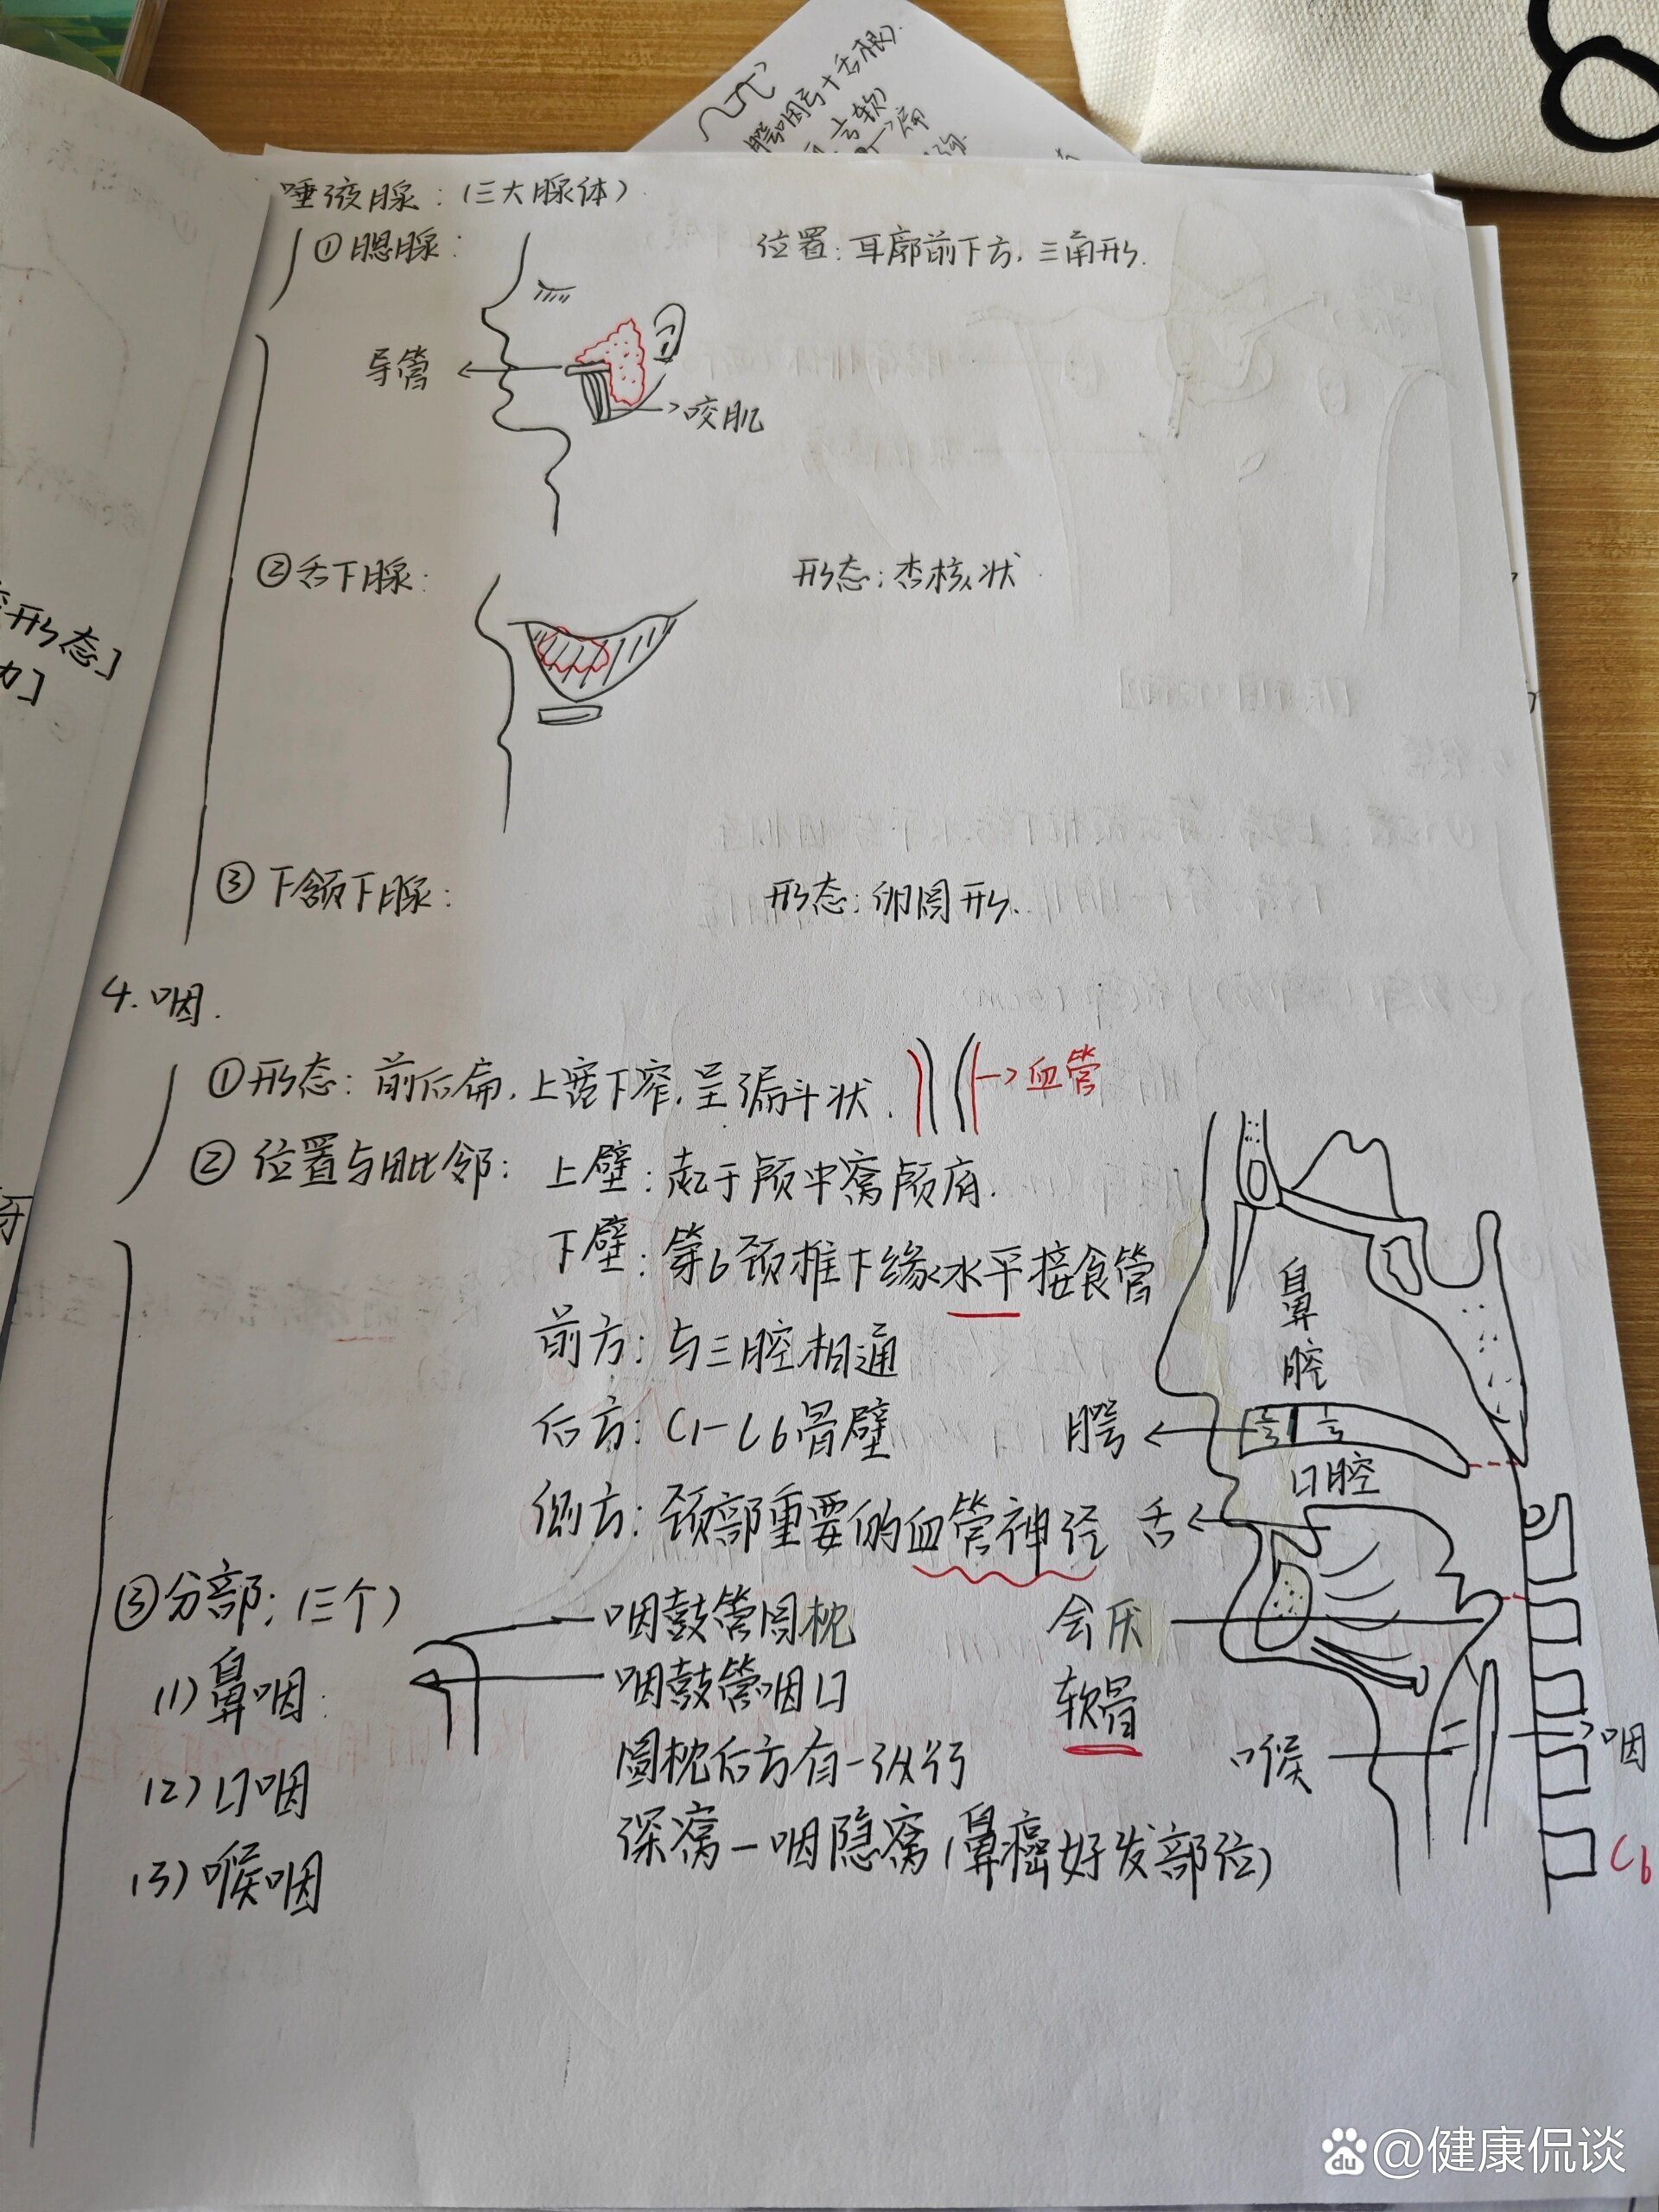 腭咽弓+舌根)
唾液腺:(三大腺体)
①腮腺:
位置:耳廓前下方,三角形.
导管
咬肌
②舌下腺:
形态:杏核状
形态]
力]
③下颌下腺:
形态:卵圆形.
4.咽.
①形态:前后扁,上宽下窄,呈漏斗状.
血管
②位置与毗邻:上壁:起于颅中窝颅底.
下壁:第6颈椎下缘水平接食管
前方:与三腔相通
后方:C1-C6骨壁
侧方:颈部重要的血管神经
鼻腔
腭
口腔
舌
③分部:(三个)
咽鼓管圆枕
会厌
软骨
(1)鼻咽:
咽鼓管咽口
圆枕后方有一纵行
喉
咽
(2)口咽
深窝—咽隐窝(鼻癌好发部位)
C6
(3)喉咽
牙
du @健康侃谈